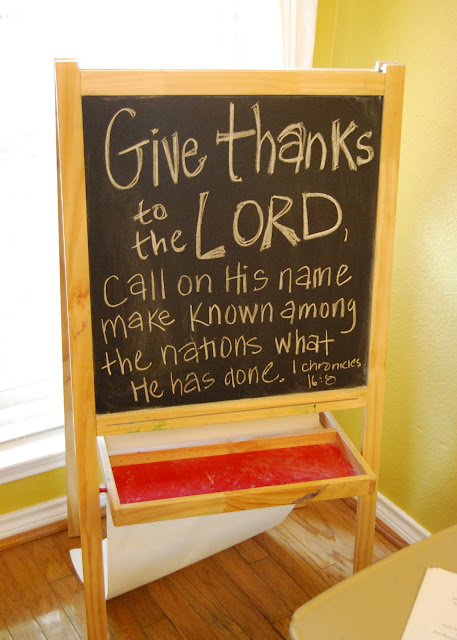 Give thanks
to
the LORD,
call on His name
make known among
the nations what
He has done. 1 chronicles
16:8